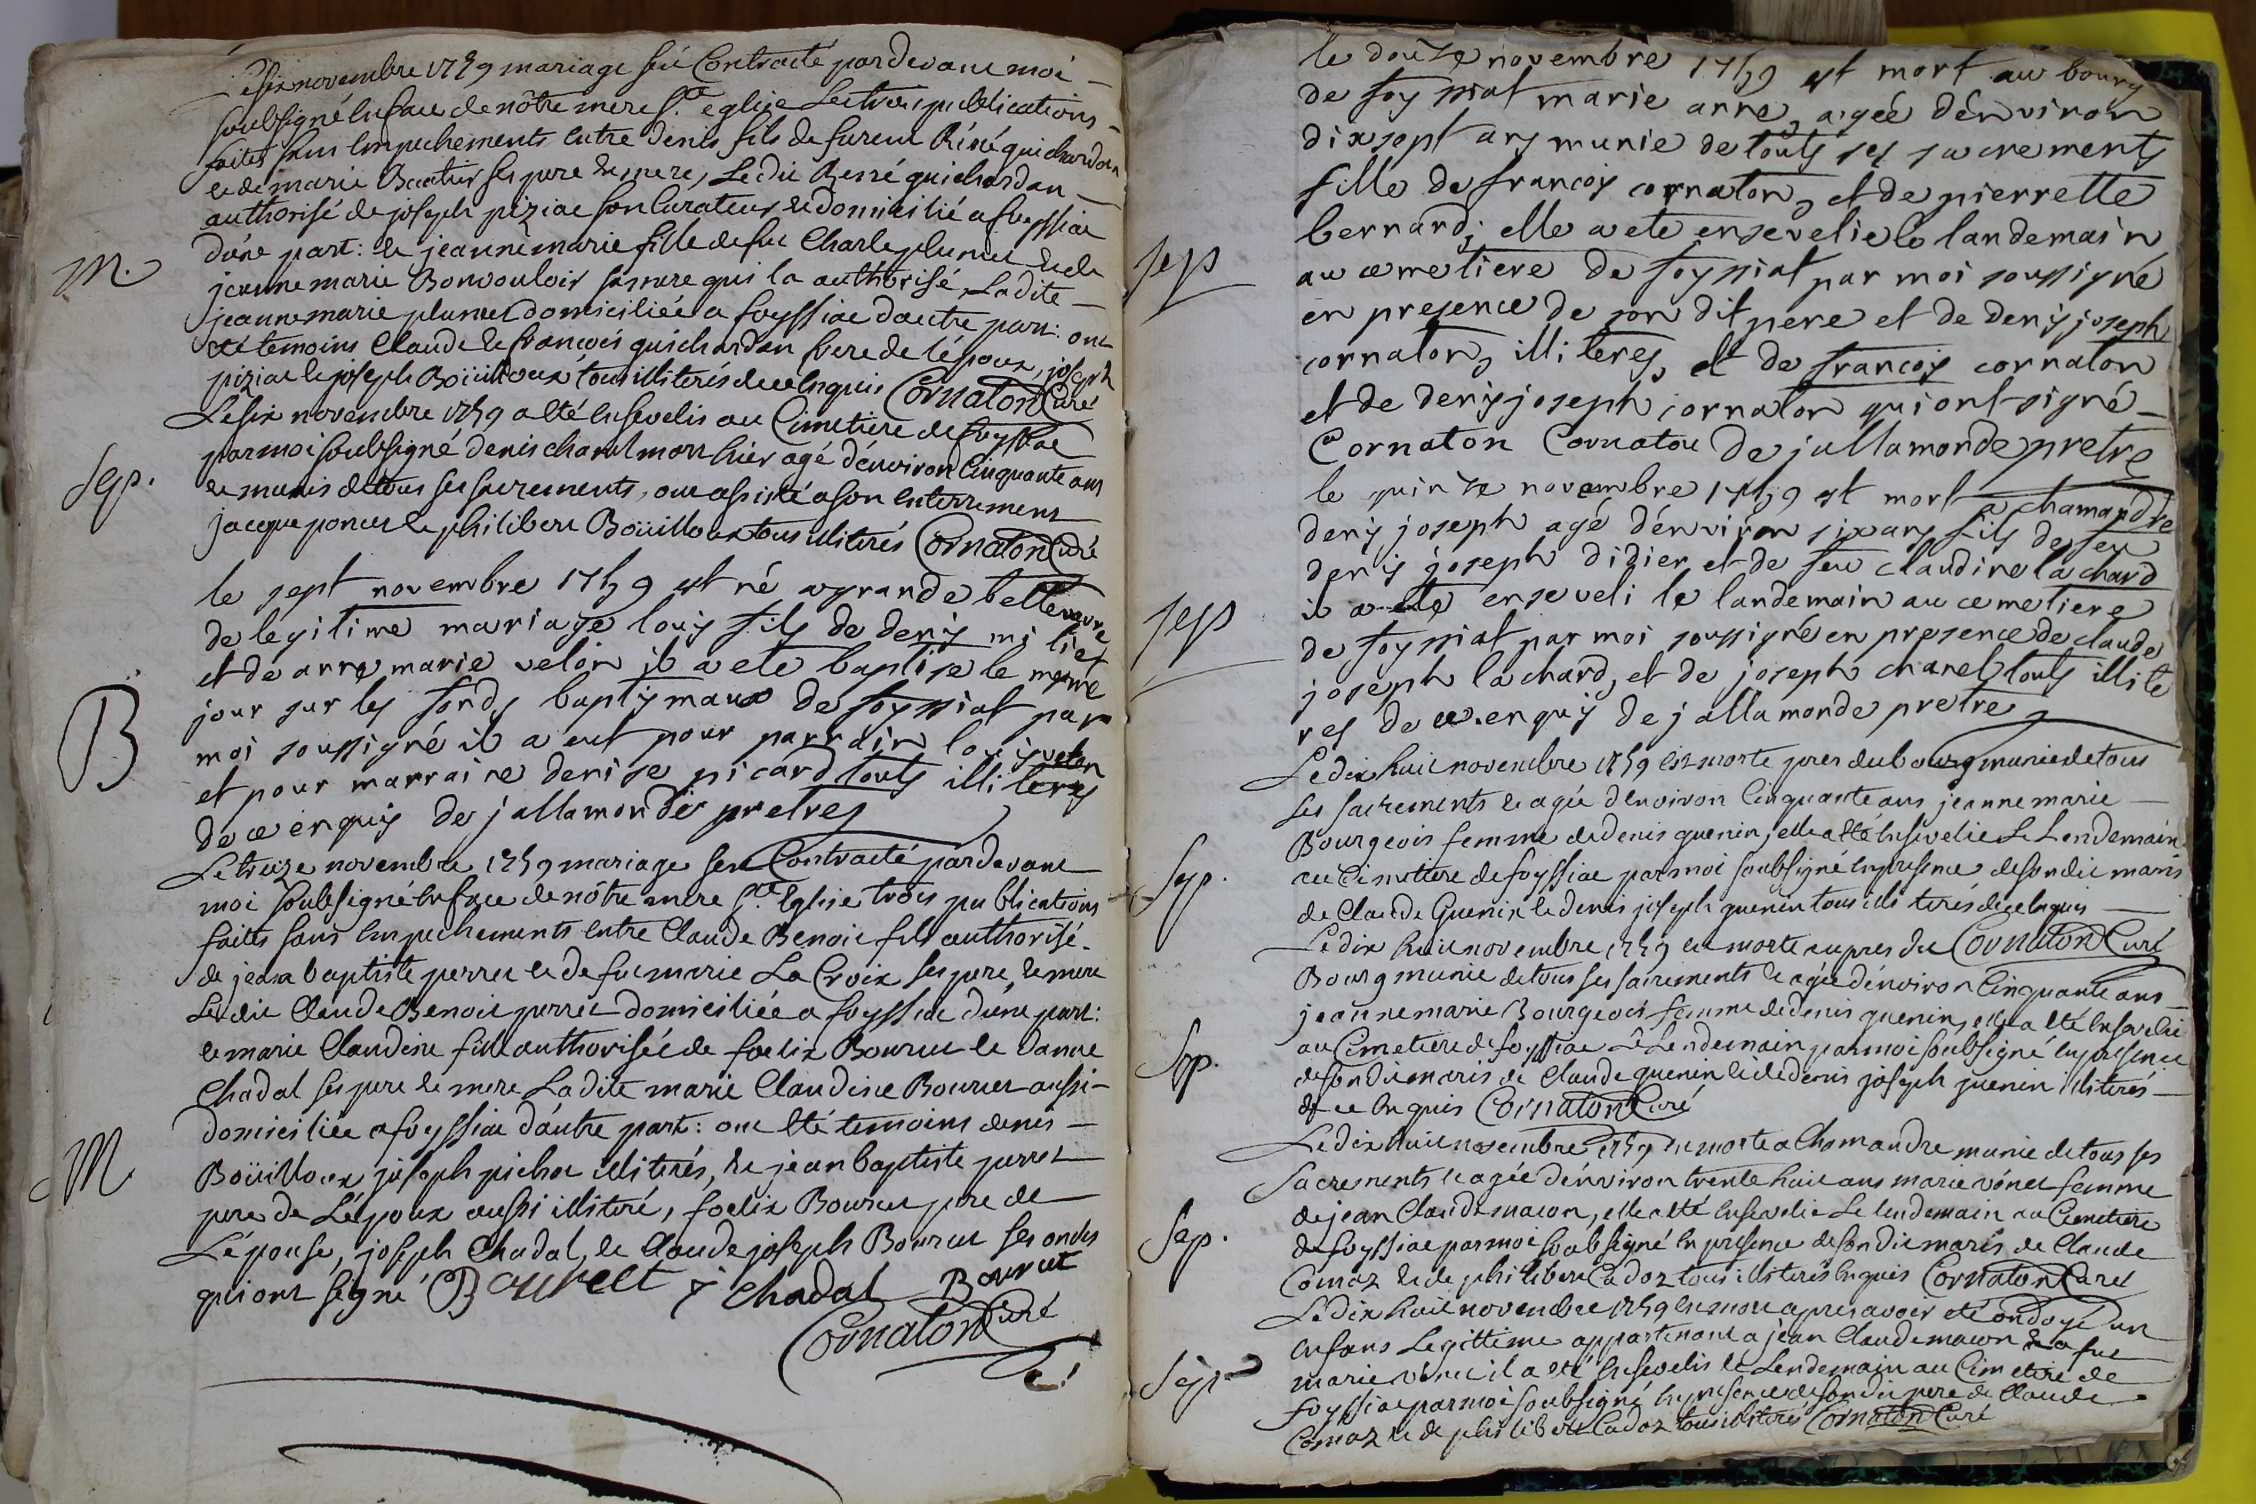 Le six novembre 1759 mariage feu Contracté pardevant moi
soubsigné en face de nôtre mere Ste eglise Les trois publications
faites sans empechements entre Denis fils de furent Réné guichardan
et de marie Ses pere et mere, Le dit René guichardan
authorisé de joseph piziat son Curateur et domicilié a foyssiat
d'une part: et jeanne marie fille de fut Charle plumet et de
M.
jeanne marie Bonvouloir sa mere qui la authorisé Ladite
jeanne marie plumet domiciliée a foyssiat d'autre part: ont
été temoins Claude et françois guichardan frere de l'époux, joseph
piziat et joseph Boüilloux tous illiterés de ce enquis Cornaton Curé
Le six novembre 1759 a été ensevelis au Cimetiere de foyssiat
Sep.
par moi soubsigné denis chanel mort hier agé d'environ Cinquante ans
et munis de tous ses sacrements, ont assisté a son enterrement
jacque poncet et philibert Boüilloux tous illiterés Cornaton Curé
le sept novembre 1759 est né a grande bellevavre
de legitime mariage louis fils de denis mi liet
et de anne marie velon il a ete baptise le meme
B
jour sur les fonds baptismaux de foyssiat par
moi soussigné il a eut pour parrain louis velon
et pour marraine denise picard touts illiteres
de ce enquis de jallamonde pretres
Le treize novembre 1759 mariage feu Contracté pardevant
moi soubsigné en face de nôtre mere Ste Eglise trois publications
faites sans empechements entre Claude Benoit fils authorisé
de jean baptiste perret et de fut marie La Croix ses pere et mere
Le dit Claude Benoit perret domiciliée a foyssiat d'une part:
et marie Claudine fille authorisée de foelix Bourcet et danne
Chadal ses pere et mere Ladite marie Claudine Bourcet aussi
domiciliée a foyssiat d'autre part: ont été temoins denis
M.
Boüilloux joseph pichot illiterés, et jean baptiste perret
pere de L'époux aussi illiteré, foelix Bourcet pere de
L'épouse, joseph Chadal, et Claude joseph Bourcet ses oncles
qui ont signé Bourcet j chadal Bourcet
Cornaton Curé
le douze novembre 1759 est mort au bourg
de foyssiat marie anne, agée d'environ
dix sept ans munie de touts ses sacrements
fille de francois cornaton, et de pierrette
bernard; elle a ete ensevelie le landemain
Seps
au cemetiere de foyssiat par moi soussigné
en presence de son dit pere et de denis joseph
cornaton, illiteres, et de francois cornaton
et de denis joseph cornaton qui ont signé
Cornaton Cornaton de jallamonde pretre
le quinze novembre 1759 est mort a chamandre
denis joseph agé d'environ six ans fils de feu
denis joseph didier et de feu claudine la chard
Seps
il a ete enseveli le landemain au cemetiere
de foyssiat par moi soussigné en presence de claude
joseph la chard, et de joseph chanel touts illite
res de ce enquis de jallamonde pretre
Le dix huit novembre 1759 est morte pres du bourg munie de tous
ses sacrements et agée d'environ Cinquante ans jeanne marie
Bourgeois femme de denis guenin, elle a été ensevelie Le Lendemain
Sep.
au Cimetiere de foyssiat par moi soubsigné en presence de son dit maris
de Claude Guenin et denis joseph guenin tous illiterés de ce enquis
Le dix huit novembre 1759 est morte aupres du Cornaton Curé
Bourg munie de tous ses sacrements et agée d'environ Cinquante ans
jeanne marie Bourgeois femme de denis guenin, elle a été ensevelie
Sep.
au Cimetiere de foyssiat Le Lendemain par moi soubsigné en presence
de son dit maris de Claude guenin et de denis joseph guenin illiterés
de ce enquis Cornaton Curé
Le dix huit novembre 1759 est morte a Chamandre munie de tous ses
sacrements et agée d'environ trente huit ans marie vénet femme
de jean Claude macon, elle a été ensevelie Le lendemain au Cimetiere
Sep.
de foyssiat par moi soubsigné en presence de son dit maris de Claude
Comaz et de philibert Cadoz tous illiterés enquis Cornaton Curé
Le dix huit novembre 1759 est mort apres avoir été ondoyé un
enfans Legittime appartenant a jean Claude macon et a fut
Sep.
marie vénet il a été ensevelis le Lendemain au Cimetiere de
foyssiat par moi soubsigné en presence de son dit pere de Claude
Comaz et de philibert Cadoz tous illiterés Cornaton Curé